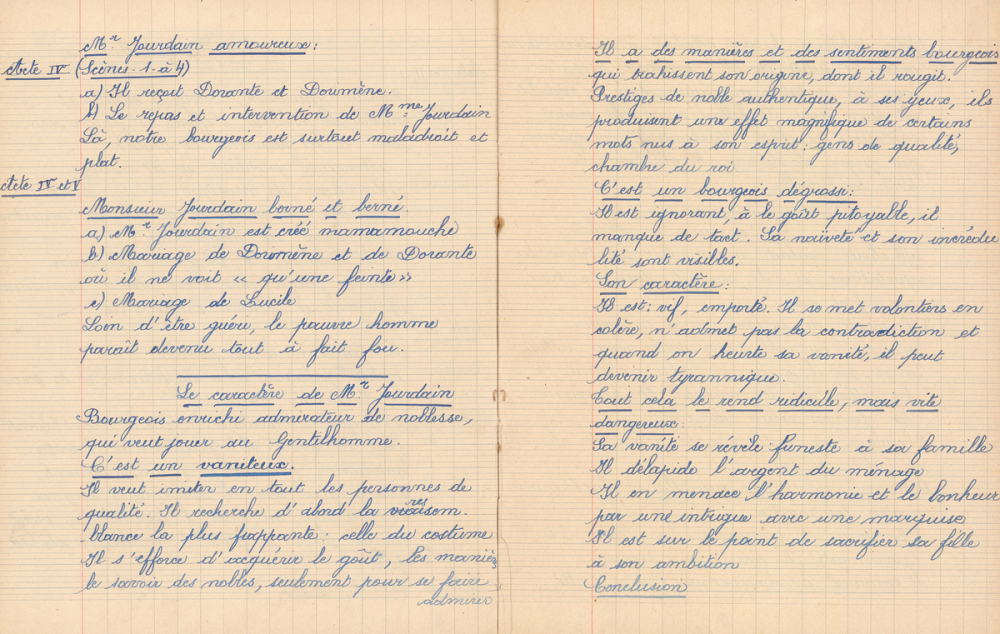 Mr Jourdain amoureux :
Acte IV (Scènes 1 à 4)
a) Il reçoit Dorante et Doumène.
b) Le repas et intervention de Mme Jourdain
Là, notre bourgeois est surtout maladroit et
plat.
Acte IV et V
Monsieur Jourdain borné et berné.
a) Mr Jourdain est créé mamamouchi
b) Mariage de Doumène et de Dorante
où il ne voit « qu'une feinte »
c) Mariage de Lucile
Loin d'être guéri, le pauvre homme
paraît devenu tout à fait fou.
Le caractère de Mr Jourdain
Bourgeois enrichi admirateur de noblesse,
qui veut jouer au Gentilhomme.
C'est un vaniteux.
Il veut imiter en tout les personnes de
qualité. Il recherche d'abord la ressem-
blance la plus frappante : celle du costume
Il s'efforce d'acquérir le goût, les manières
le savoir des nobles, seulement pour se faire
admirer
Il a des manières et des sentiments bourgeois
qui trahissent son origine, dont il rougit.
Prestiges de noble authentique, à ses yeux, ils
produisent une effet magnifique de certains
mots nus à son esprit : gens de qualité,
chambre du roi
C'est un bourgeois dégrossi :
Il est ignorant, à le goût pitoyable, il
manque de tact. Sa naïveté et son incrédu
lité sont visibles.
Son caractère :
Il est : vif, emporté. Il se met volontiers en
colère, n'admet pas la contradiction et
quand on heurte sa vanité, il peut
devenir tyrannique.
Tout cela le rend ridicule, mais vite
dangereux :
Sa vanité se révèle funeste à sa famille
Il délapide l'argent du ménage
Il en menace l'harmonie et le bonheur
par une intrigue avec une marquise
Il est sur le point de sacrifier sa fille
à son ambition
Conclusion